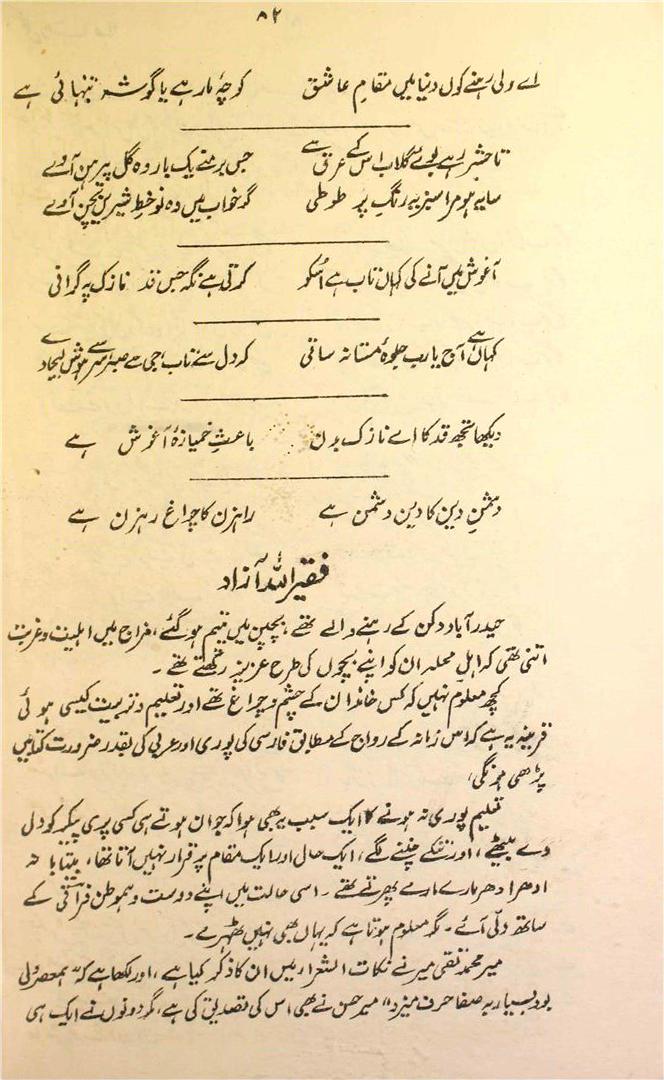 ۸۲
اے ولی رہنے کوں دنیا میں مقامِ عاشق کوچۂ یار ہے یا گوشہ تنہائی ہے
تا حشر رہے بوئے گلاب اس کے عرق سے جس بر منے یک بار وہ گل پیرہن آوے
سایہ ہو مرا سبز بہ رنگِ پر طوطی گر خواب میں وہ نو خطِ شیریں بچن آوے
آغوش میں آنے کی کہاں تاب ہے اسکو کرتی ہے نگہ جس قد نازک پہ گرانی
کہاں ہے آج یارب جلوۂ مستانہ ساقی کہ دل سے تاب، جی سے صبر، سر سے ہوش لیجاوے
دیکھنا تجھ قد کا اے نازک بدن باعثِ خمیازۂ آغوش ہے
دشمنِ دین کا دین دشمن ہے راہزن کا چراغ رہزن ہے
فقیر اللہ آزاد
حیدرآباد دکن کے رہنے والے تھے، بچپن میں یتیم ہو گئے، مزاج میں اہلیت و غربت
اتنی تھی کہ اہل محلہ ان کو اپنے بچوں کی طرح عزیز رکھتے تھے۔
کچھ معلوم نہیں کہ کس خاندان کے چشم و چراغ تھے اور تعلیم و تربیت کیسی ہوئی
قرینہ یہ ہے کہ اس زمانہ کے رواج کے مطابق فارسی کی پوری اور عربی کی بقدر ضرورت کتابیں
پڑھی ہونگی،
تعلیم پوری نہ ہونے کا ایک سبب یہ بھی ہوا کہ جوان ہوتے ہی کسی پری پیکر کو دل
دے بیٹھے، اور تنکے چننے لگے، ایک حال اور ایک مقام پر قرار نہیں آتا تھا، بیتابانہ
ادھر ادھر مارے مارے پھرتے تھے۔ اسی حالت میں اپنے دوست و ہموطن فراقی کے
ساتھ دلّی آئے۔ مگر معلوم ہوتا ہے کہ یہاں بھی نہیں ٹھہرے۔
میر محمد تقی میر نے نکات الشعرا میں ان کا ذکر کیا ہے، اور لکھا ہے کہ "ہمعصر ولی
بود بسیار بہ صفا حرف میزد" میر حسن نے بھی اس کی تصدیق کی ہے، مگر دونوں نے ایک ہی